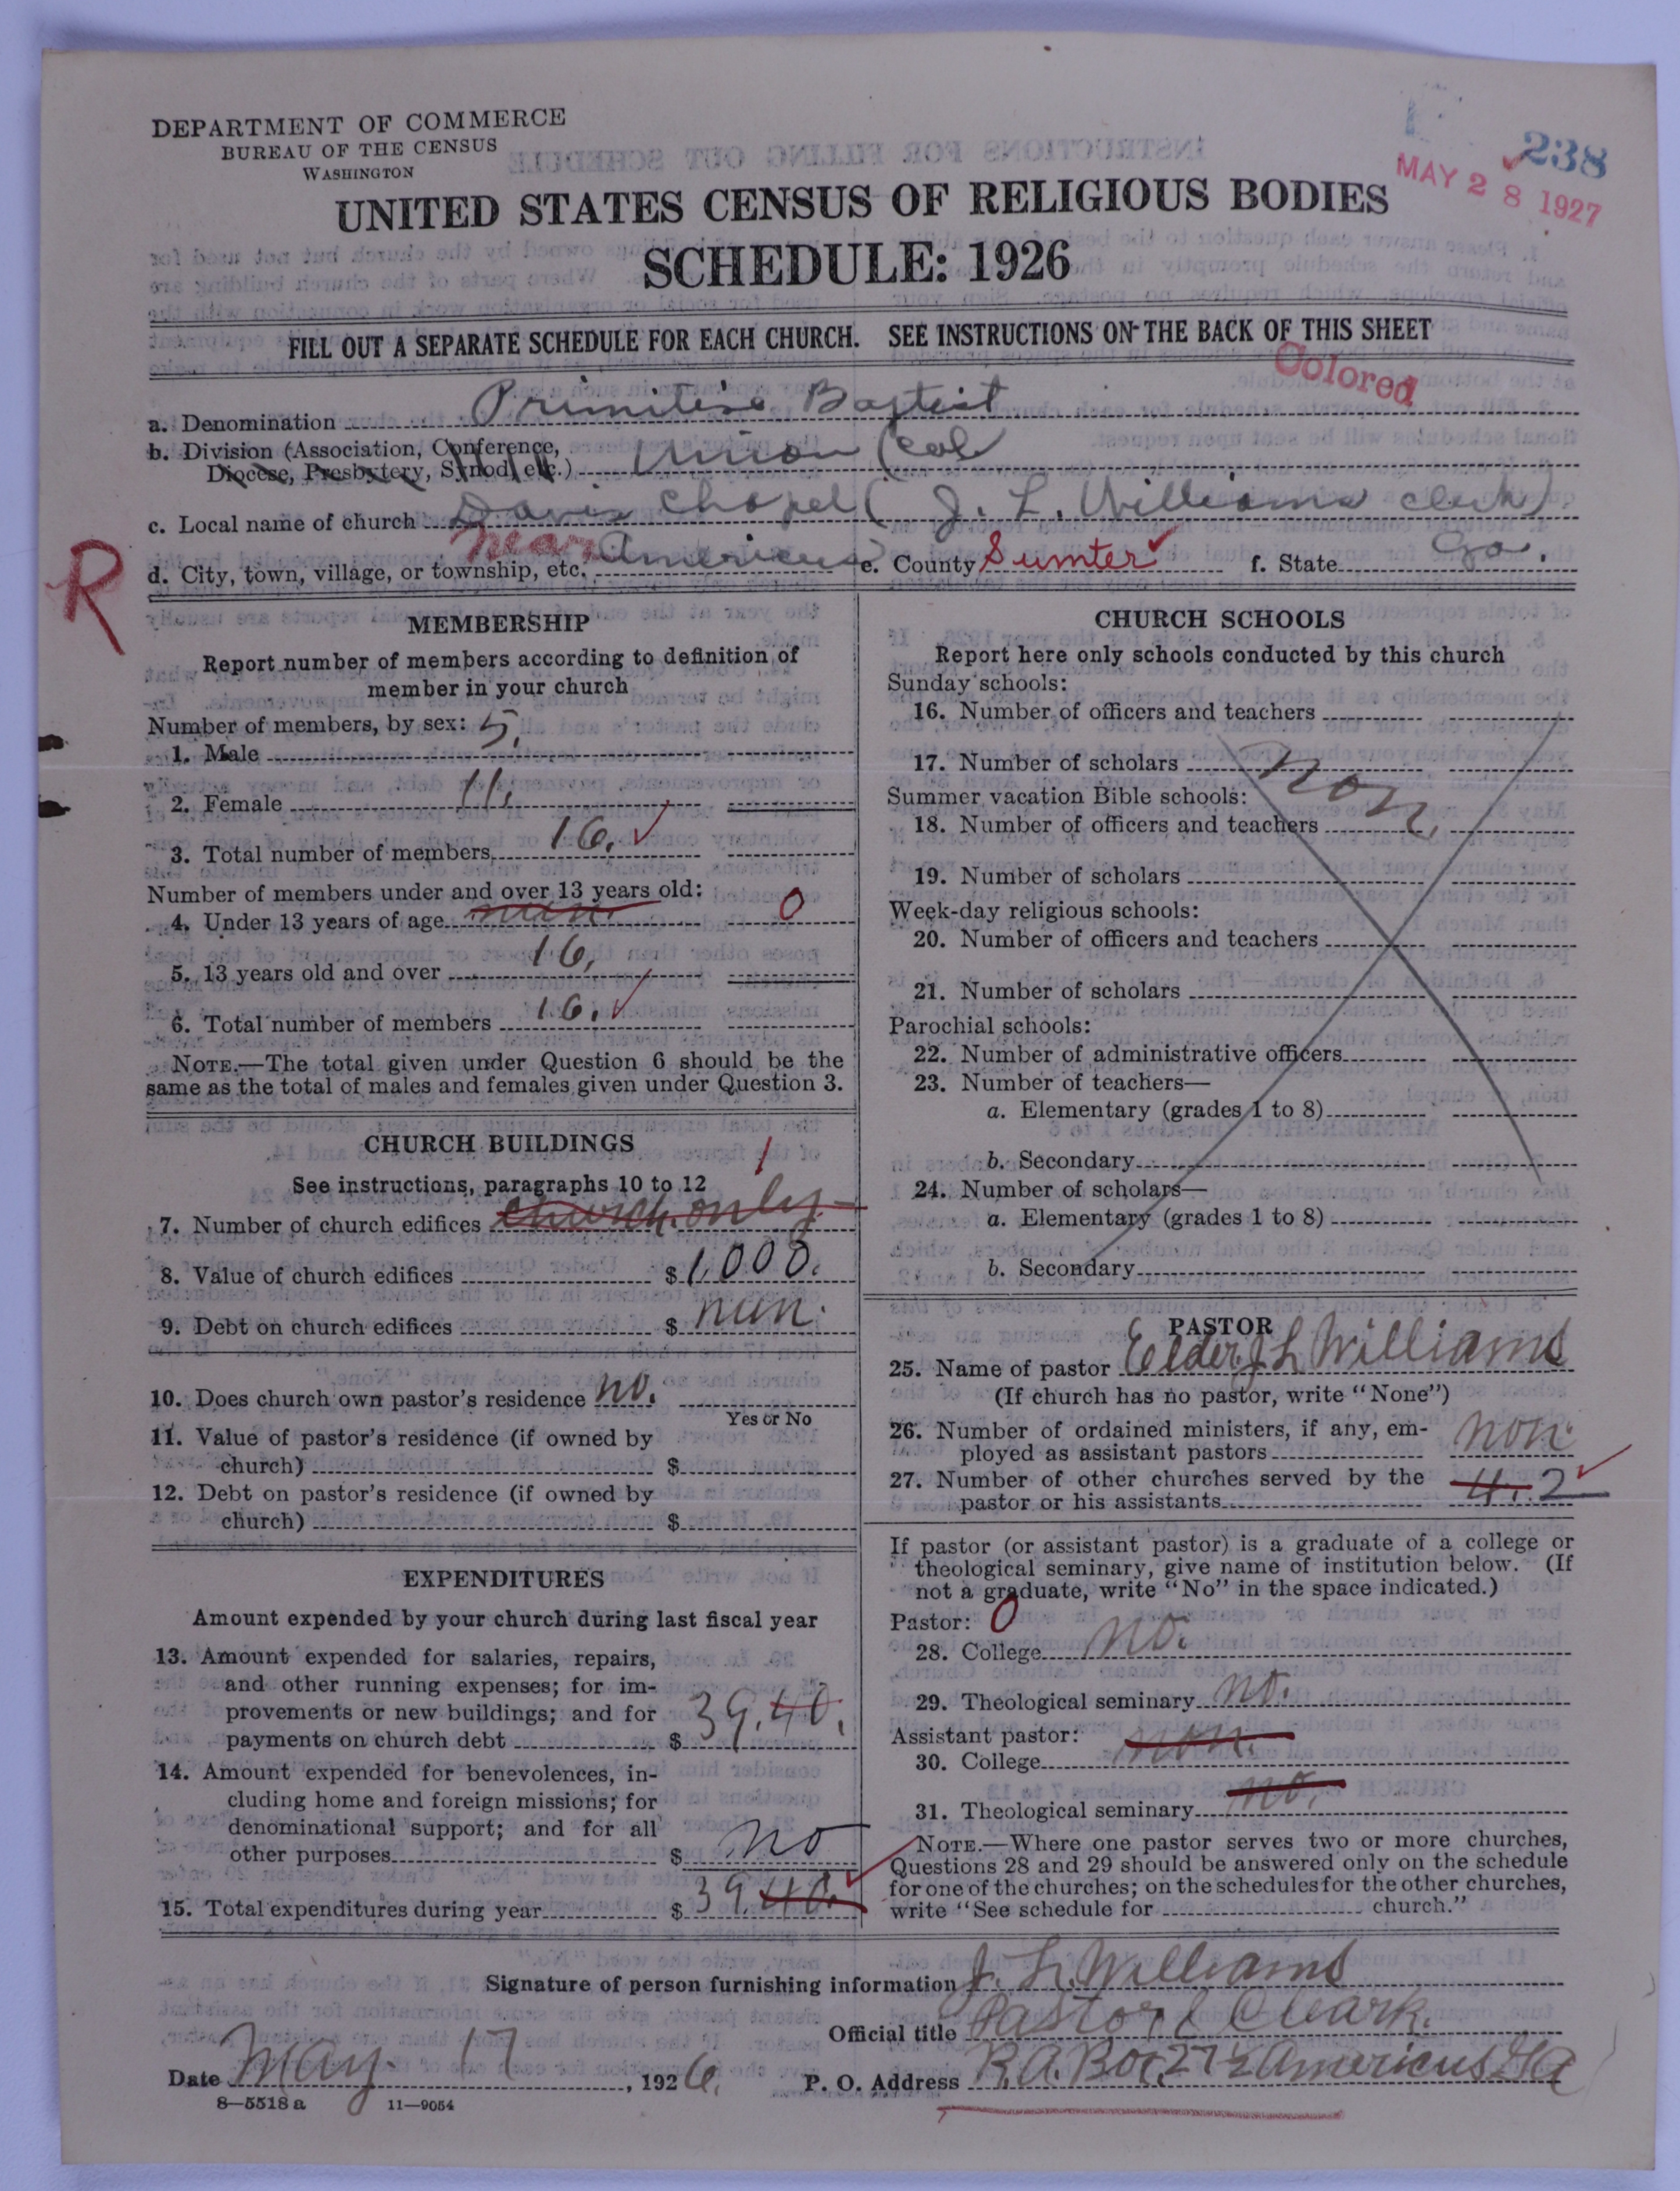 DEPARTMENT OF COMMERCE
BUREAU OF THE CENSUS
WASHINGTON
238
MAY 28 1927
UNITED STATES CENSUS OF RELIGIOUS BODIES
SCHEDULE: 1926
FILL OUT A SEPARATE SCHEDULE FOR EACH CHURCH. SEE INSTRUCTIONS ON THE BACK OF THIS SHEET
Colored
a. Denomination Primitive Baptist
b. Division (Association, Conference,
Diocese, Presbytery, Synod, etc.) Union (Col
c. Local name of church Davis Chapel (J. L. Williams clerk)
R
d. City, town, village, or township, etc. near Americus e. County Sumter f. State Ga.
MEMBERSHIP
Report number of members according to definition of
member in your church
Number of members, by sex:
1. Male 5.
2. Female 11.
3. Total number of members 16.
Number of members under and over 13 years old:
4. Under 13 years of age nun. 0
5. 13 years old and over 16.
6. Total number of members 16.
NOTE.—The total given under Question 6 should be the
same as the total of males and females given under Question 3.
CHURCH BUILDINGS
See instructions, paragraphs 10 to 12
7. Number of church edifices church only 1
8. Value of church edifices $ 1,000.
9. Debt on church edifices $ nun.
10. Does church own pastor's residence no.
Yes or No
11. Value of pastor's residence (if owned by
church) $
12. Debt on pastor's residence (if owned by
church) $
EXPENDITURES
Amount expended by your church during last fiscal year
13. Amount expended for salaries, repairs,
and other running expenses; for im-
provements or new buildings; and for
payments on church debt $ 39.40.
14. Amount expended for benevolences, in-
cluding home and foreign missions; for
denominational support; and for all
other purposes $ no
15. Total expenditures during year $ 39.40.
CHURCH SCHOOLS
Report here only schools conducted by this church
Sunday schools:
16. Number of officers and teachers
17. Number of scholars non.
Summer vacation Bible schools:
18. Number of officers and teachers
19. Number of scholars
Week-day religious schools:
20. Number of officers and teachers
21. Number of scholars
Parochial schools:
22. Number of administrative officers
23. Number of teachers—
a. Elementary (grades 1 to 8)
b. Secondary
24. Number of scholars—
a. Elementary (grades 1 to 8)
b. Secondary
PASTOR
25. Name of pastor Elder J L Williams
(If church has no pastor, write "None")
26. Number of ordained ministers, if any, em-
ployed as assistant pastors non.
27. Number of other churches served by the
pastor or his assistants 4. 2
If pastor (or assistant pastor) is a graduate of a college or
theological seminary, give name of institution below. (If
not a graduate, write "No" in the space indicated.)
Pastor: 0
28. College no.
29. Theological seminary no.
Assistant pastor:
30. College non.
31. Theological seminary no.
NOTE.—Where one pastor serves two or more churches,
Questions 28 and 29 should be answered only on the schedule
for one of the churches; on the schedules for the other churches,
write "See schedule for church."
Signature of person furnishing information J. L. Williams
Official title Pastor & Clark.
Date May 17, 1926. P. O. Address R.A. Box 27½ Americus Ga
8—5518 a 11—9054